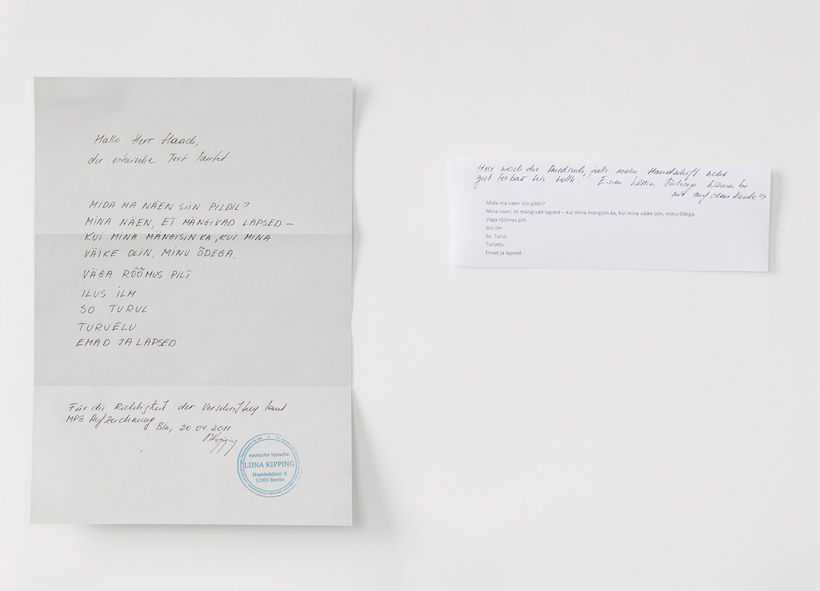 Hallo Herr Haack,
der estnische Text lautet
MIDA MA NÄEN SIIN PILDIL?
MINA NÄEN, ET MÄNGIVAD LAPSED –
KUI MINA MÄNGISIN KA, KUI MINA
VÄIKE OLIN, MINU ÕDEGA.
VÄGA RÕÕMUS PILT
ILUS ILM
SO. TURUL
TURUELU.
EMAD JA LAPSED
Für die Richtigkeit der Verschriftung laut
MP3 Aufzeichnung
Bln, 20.04.2011
Estnische Sprache
LIINA KIPPING
12305 Berlin
Hier noch der Ausdruck, falls meine Handschrift nicht
gut lesbar sein sollte. Einen kleinen
mit auf das
Mida ma näen siin pildil?
Mina näen, et mängivad lapsed – kui mina mängisin ka, kui mina väike olin, minu õdega.
Väga rõõmus pilt.
Ilus ilm.
So. Turul.
Turuelu.
Emad ja lapsed.